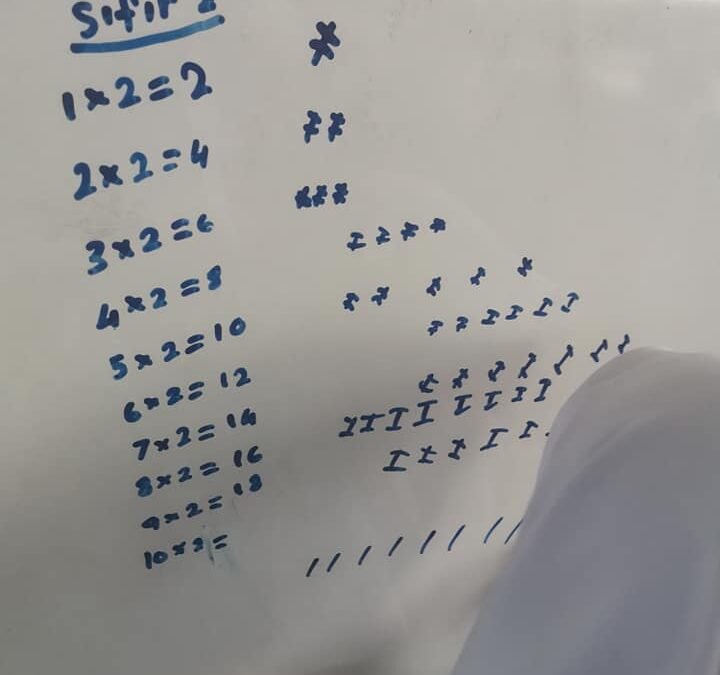 Sifir 2
1×2=2
2×2=4
3×2=6
4×2=8
5×2=10
6×2=12
7×2=14
8×2=16
9×2=18
10×2=